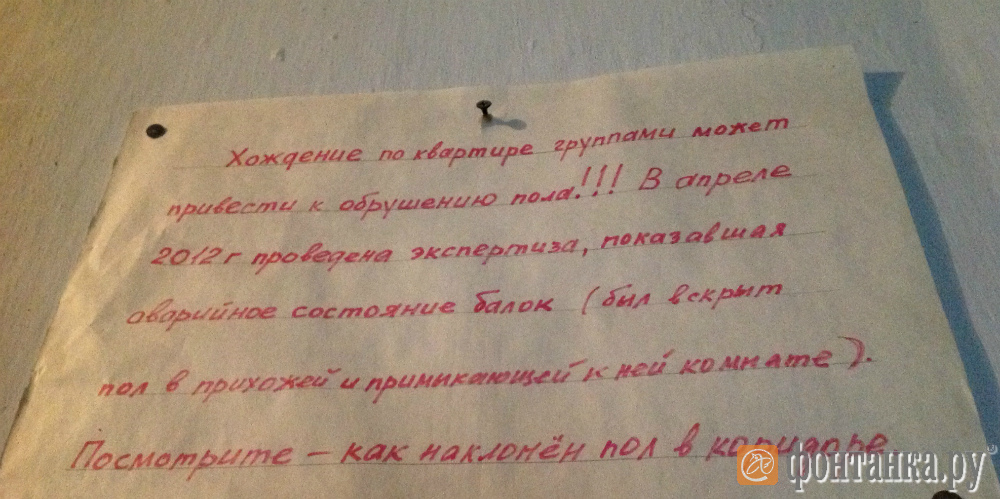 Хождение по квартире группами может
привести к обрушению пола!!! В апреле
2012г проведена экспертиза, показавшая
аварийное состояние балок (был вскрыт
пол в прихожей и примыкающей к ней комнате).
Посмотрите – как наклонён пол в коридоре.
фонтанка.ру